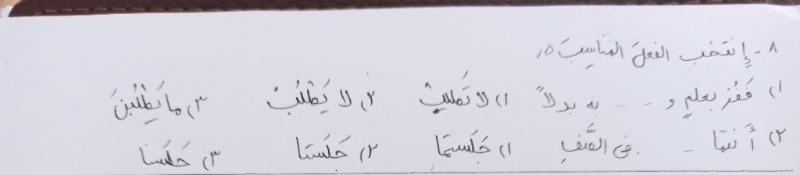 ٨- إِنتَخب الفعلَ المُناسِبَ:
١) فَفُز بعلمٍ و - - به بدلاً ١) لا تَطلُبْ ٢) لا يَطْلُبُ ٣) ما يَطْلُبْنَ
٢) أَنتُما - . فی الصَّفِّ ١) جَلَستُما ٢) جَلَستا ٣) جَلَسنا